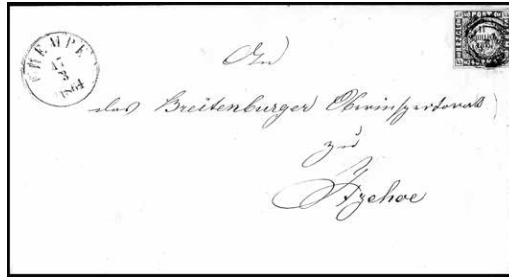 KREMPE
17
3
1864
An
das Breitenburger Oberinspectorat
zu
Itzehoe